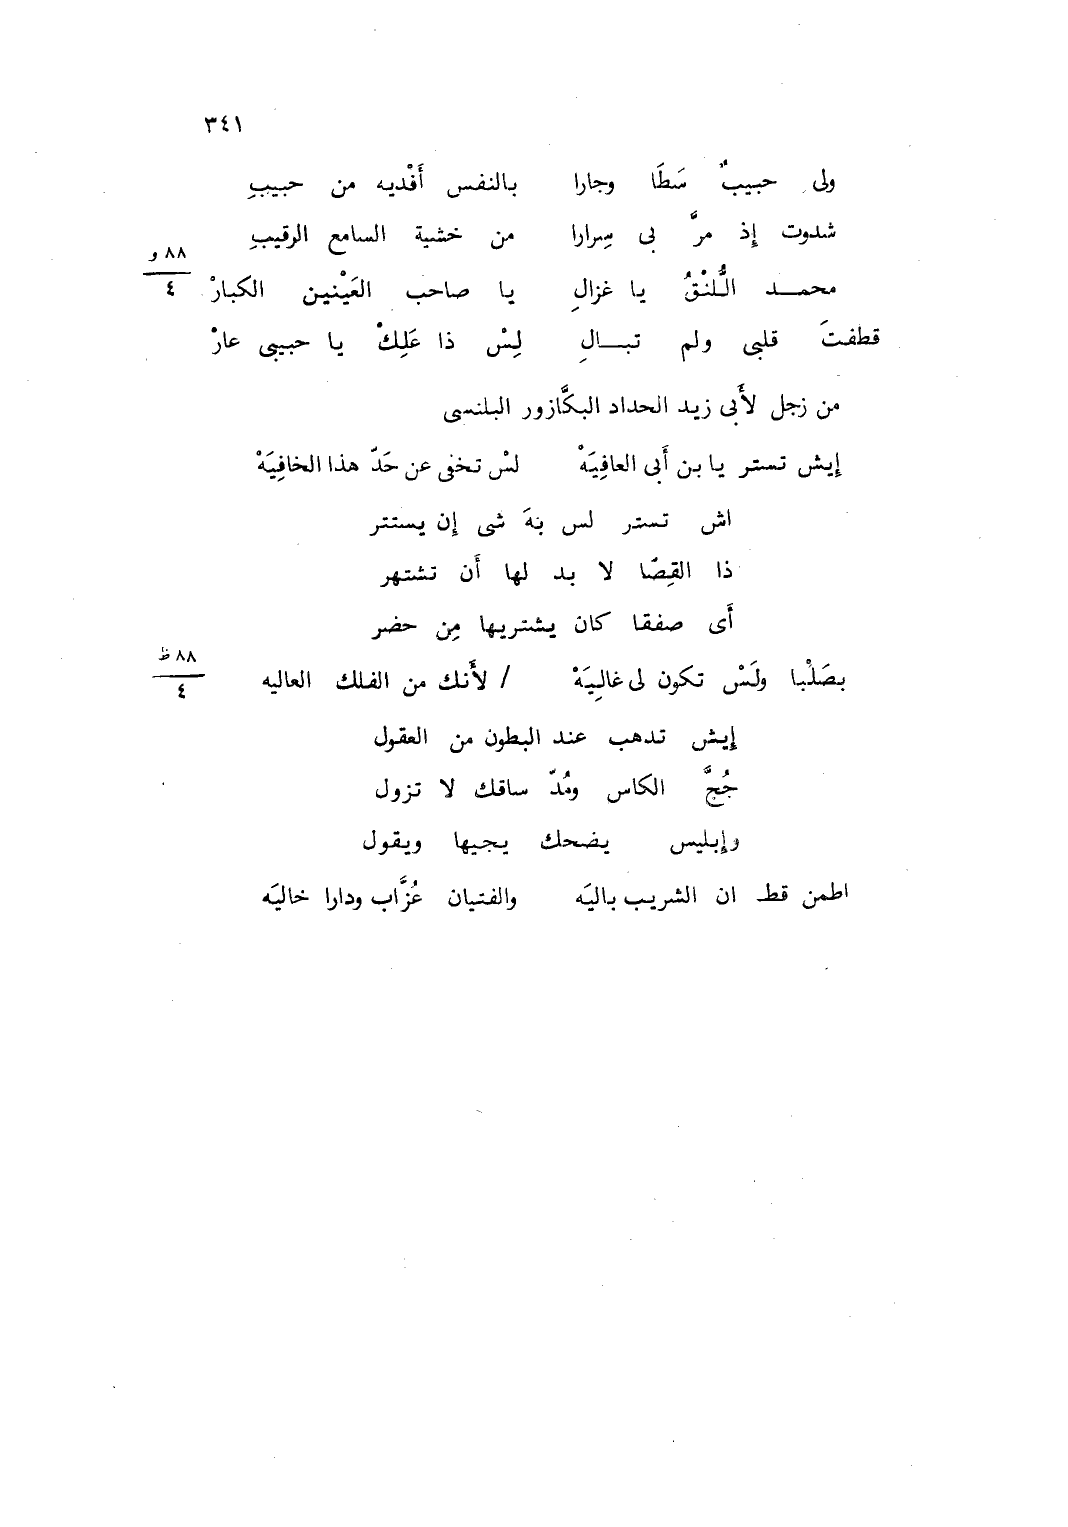 ٣٤١
ولى حبيبٌ سَطَا وجارا بالنفس أَفْديه من حبيبِ
شدوت إذ مرَّ بى سِرارا من خشية السامع الرقيبِ
٨٨ و
٤
محمـــد اللُّنْقُ يا غزالِ يا صاحب العَيْنين الكبارْ
قطفتَ قلبى ولم تبـــالِ لِسْ ذا عَلِكْ يا حبيبى عارْ
من زجل لأَبى زيد الحداد البكَّازور البلنسى
إيش تستر يا بن أَبى العافِيَهْ لسْ تخفى عن حَدّ هذا الخافِيَهْ
اش تستر لس بهَ شى إن يستتر
ذا القِصّا لا بد لها أَن تشتهر
أَى صفقا كان يشتريها مِن حضر
٨٨ ظ
٤
بصَلْبا ولَسْ تكون لى غالِيَهْ / لأَنك من الفلك العاليه
إيش تدهب عند البطون من العقول
جُجَّ الكاس ومُدّ ساقك لا تزول
وإبليس يضحك يجيها ويقول
اطمن قط ان الشريب باليَه والفتيان عُزَّاب ودارا خاليَه